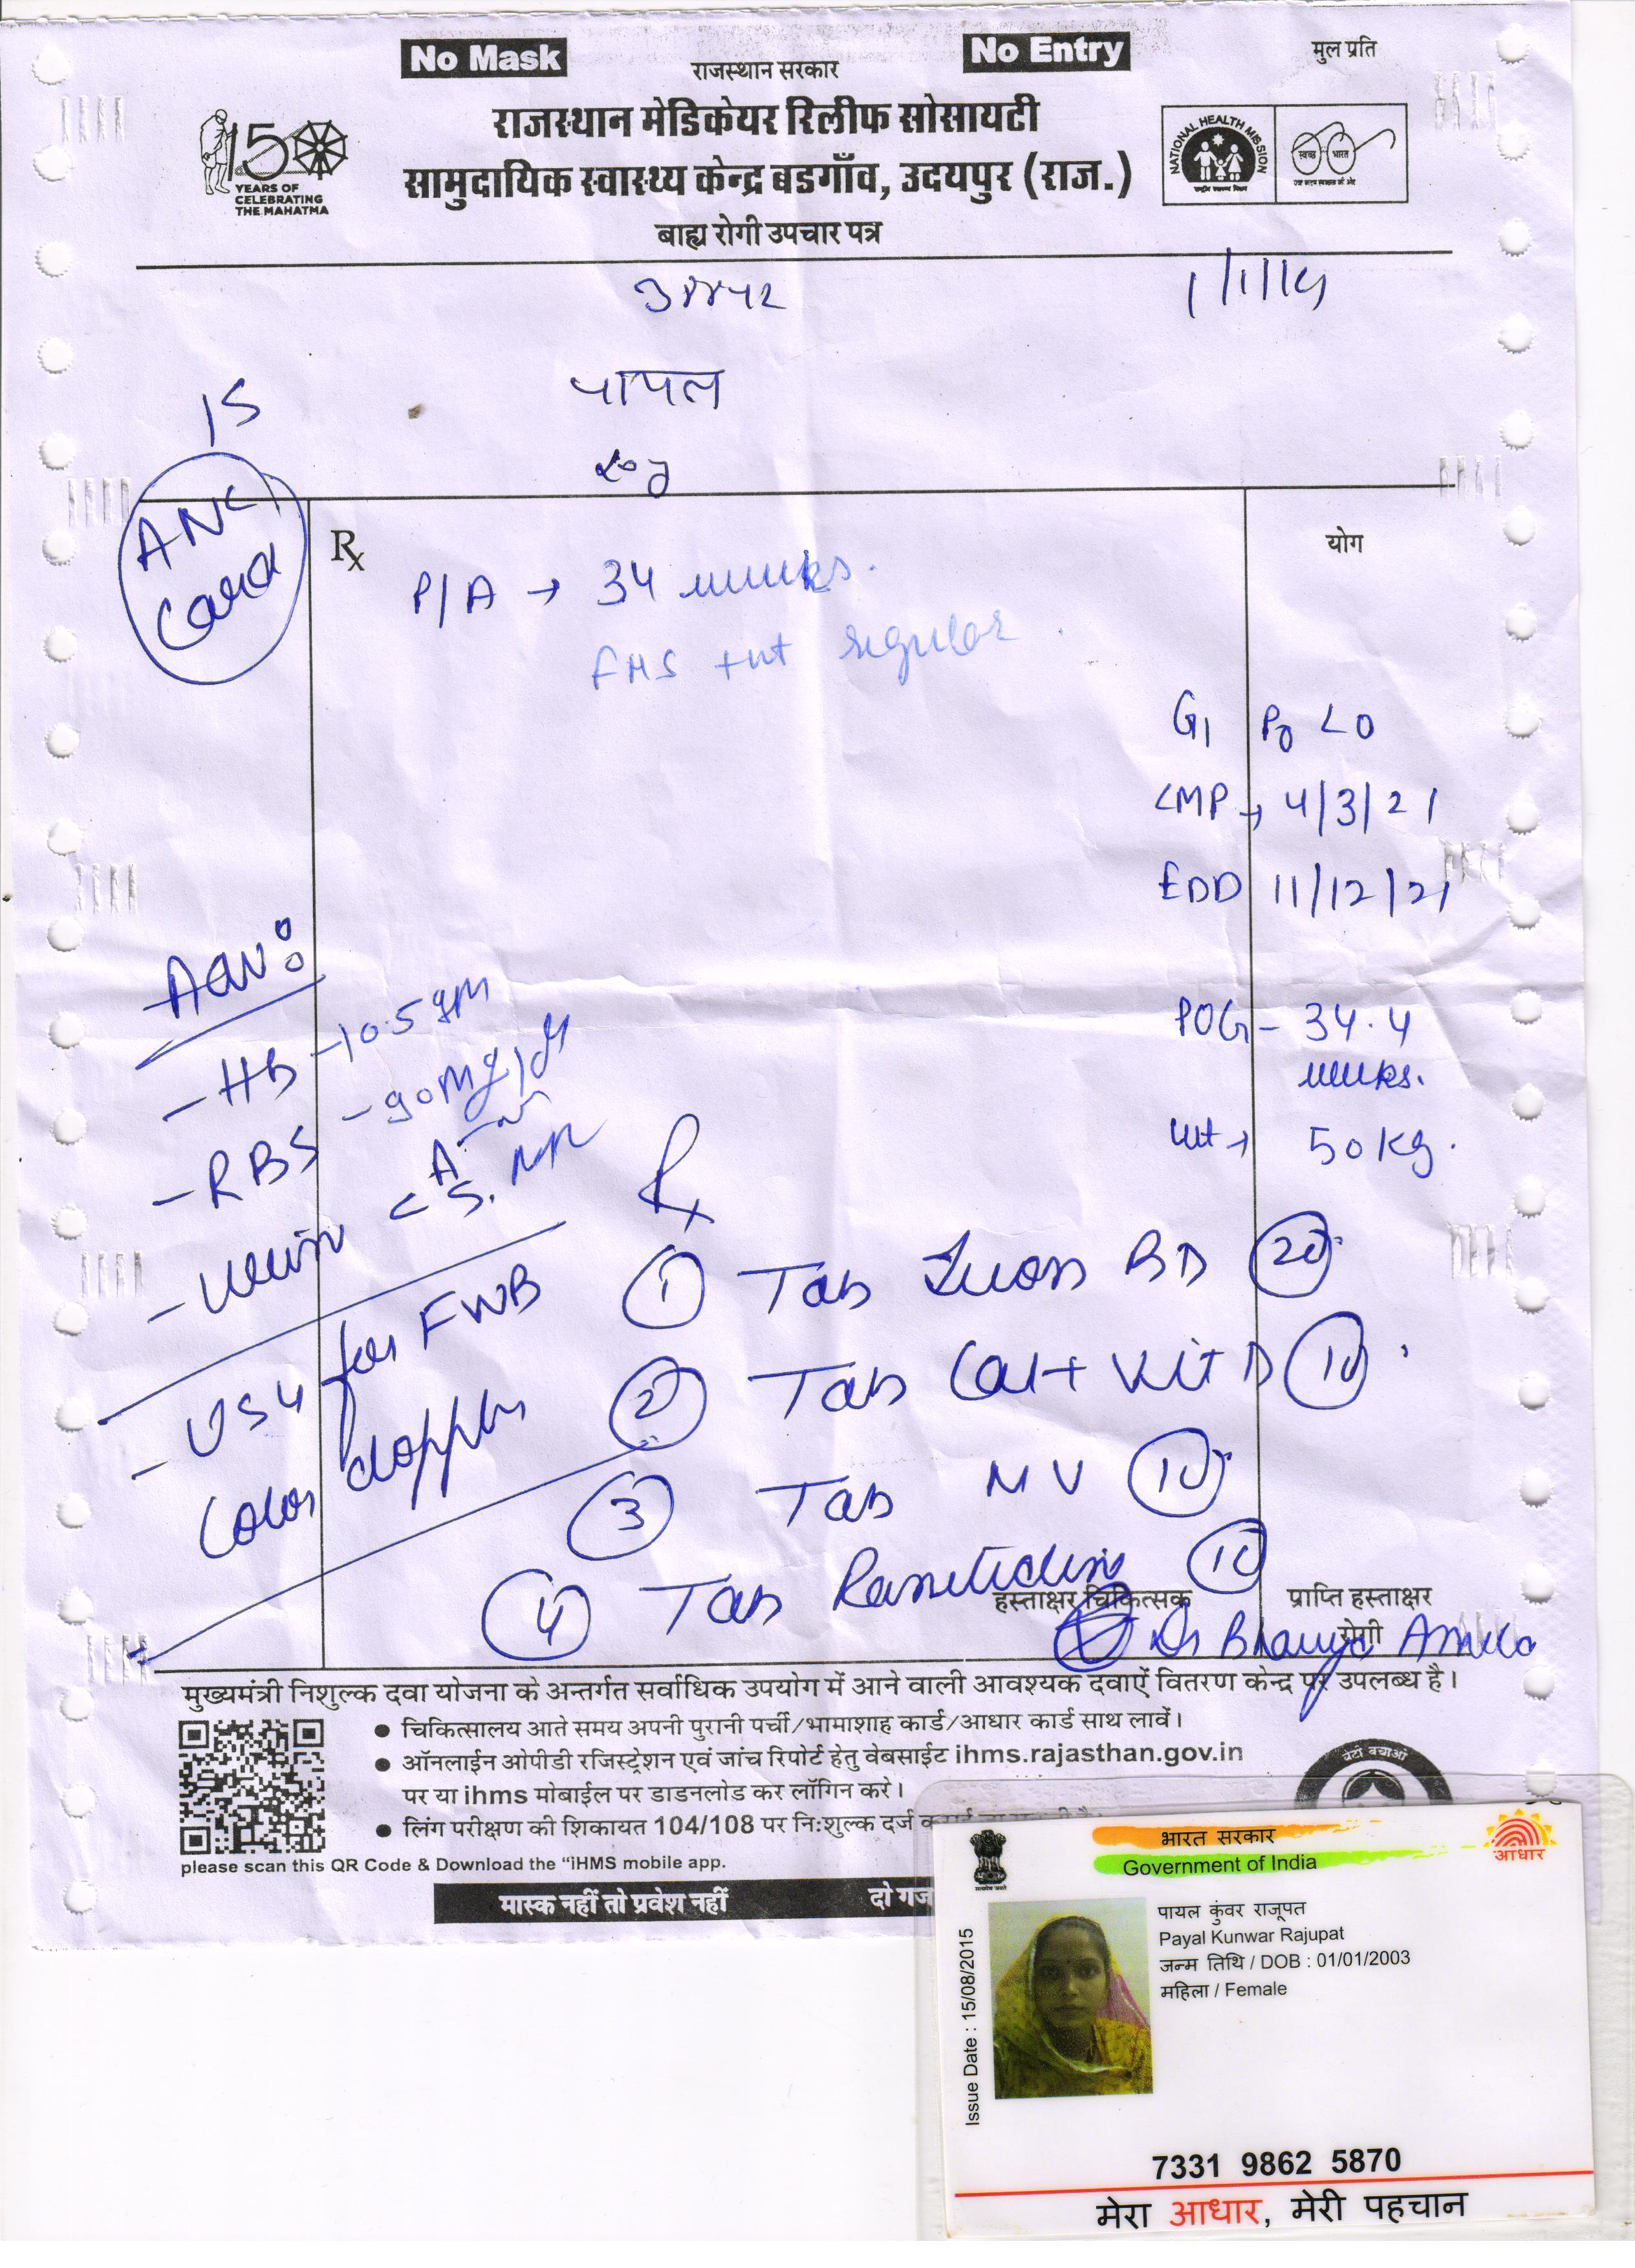 No Mask
No Entry
मुल प्रति
राजस्थान सरकार
राजस्थान मेडिकेयर रिलीफ सोसायटी
सामुदायिक स्वास्थ्य केन्द्र बडगाँव, उदयपुर (राज.)
बाह्य रोगी उपचार पत्र
150
YEARS OF
CELEBRATING
THE MAHATMA
NATIONAL HEALTH MISSION
स्वच्छ भारत
15
पायल
ANC
Card
Rx
योग
P/A → 34 weeks.
FHS +nt regular
G1 P0 L0
LMP → 4/3/21
EDD 11/12/21
POG - 34.4
weeks.
Wt → 50 kg.
Adv:
- HB - 10.5 gm
- RBS - 90 mg/dl
- Urine
- USG for FWB
Color doppler
Rx
1 Tab Iron BD 20
2 Tab Cal + Vit D 10
3 Tab MV 10
4 Tab Ranitidin 10
हस्ताक्षर चिकित्सक
प्राप्ति हस्ताक्षर
रोगी
Dr Bhavya
मुख्यमंत्री निशुल्क दवा योजना के अन्तर्गत सर्वाधिक उपयोग में आने वाली आवश्यक दवाऐं वितरण केन्द्र पर उपलब्ध है।
• चिकित्सालय आते समय अपनी पुरानी पर्ची/भामाशाह कार्ड/आधार कार्ड साथ लावें।
• ऑनलाईन ओपीडी रजिस्ट्रेशन एवं जांच रिपोर्ट हेतु वेबसाईट ihms.rajasthan.gov.in
पर या ihms मोबाईल पर डाडनलोड कर लॉगिन करे।
• लिंग परीक्षण की शिकायत 104/108 पर निःशुल्क दर्ज
please scan this QR Code & Download the "iHMS mobile app.
बेटी बचाओ
मास्क नहीं तो प्रवेश नहीं
दो गज
भारत सरकार
Government of India
आधार
पायल कुंवर राजूपत
Payal Kunwar Rajupat
जन्म तिथि / DOB : 01/01/2003
महिला / Female
Issue Date : 15/08/2015
7331 9862 5870
मेरा आधार, मेरी पहचान